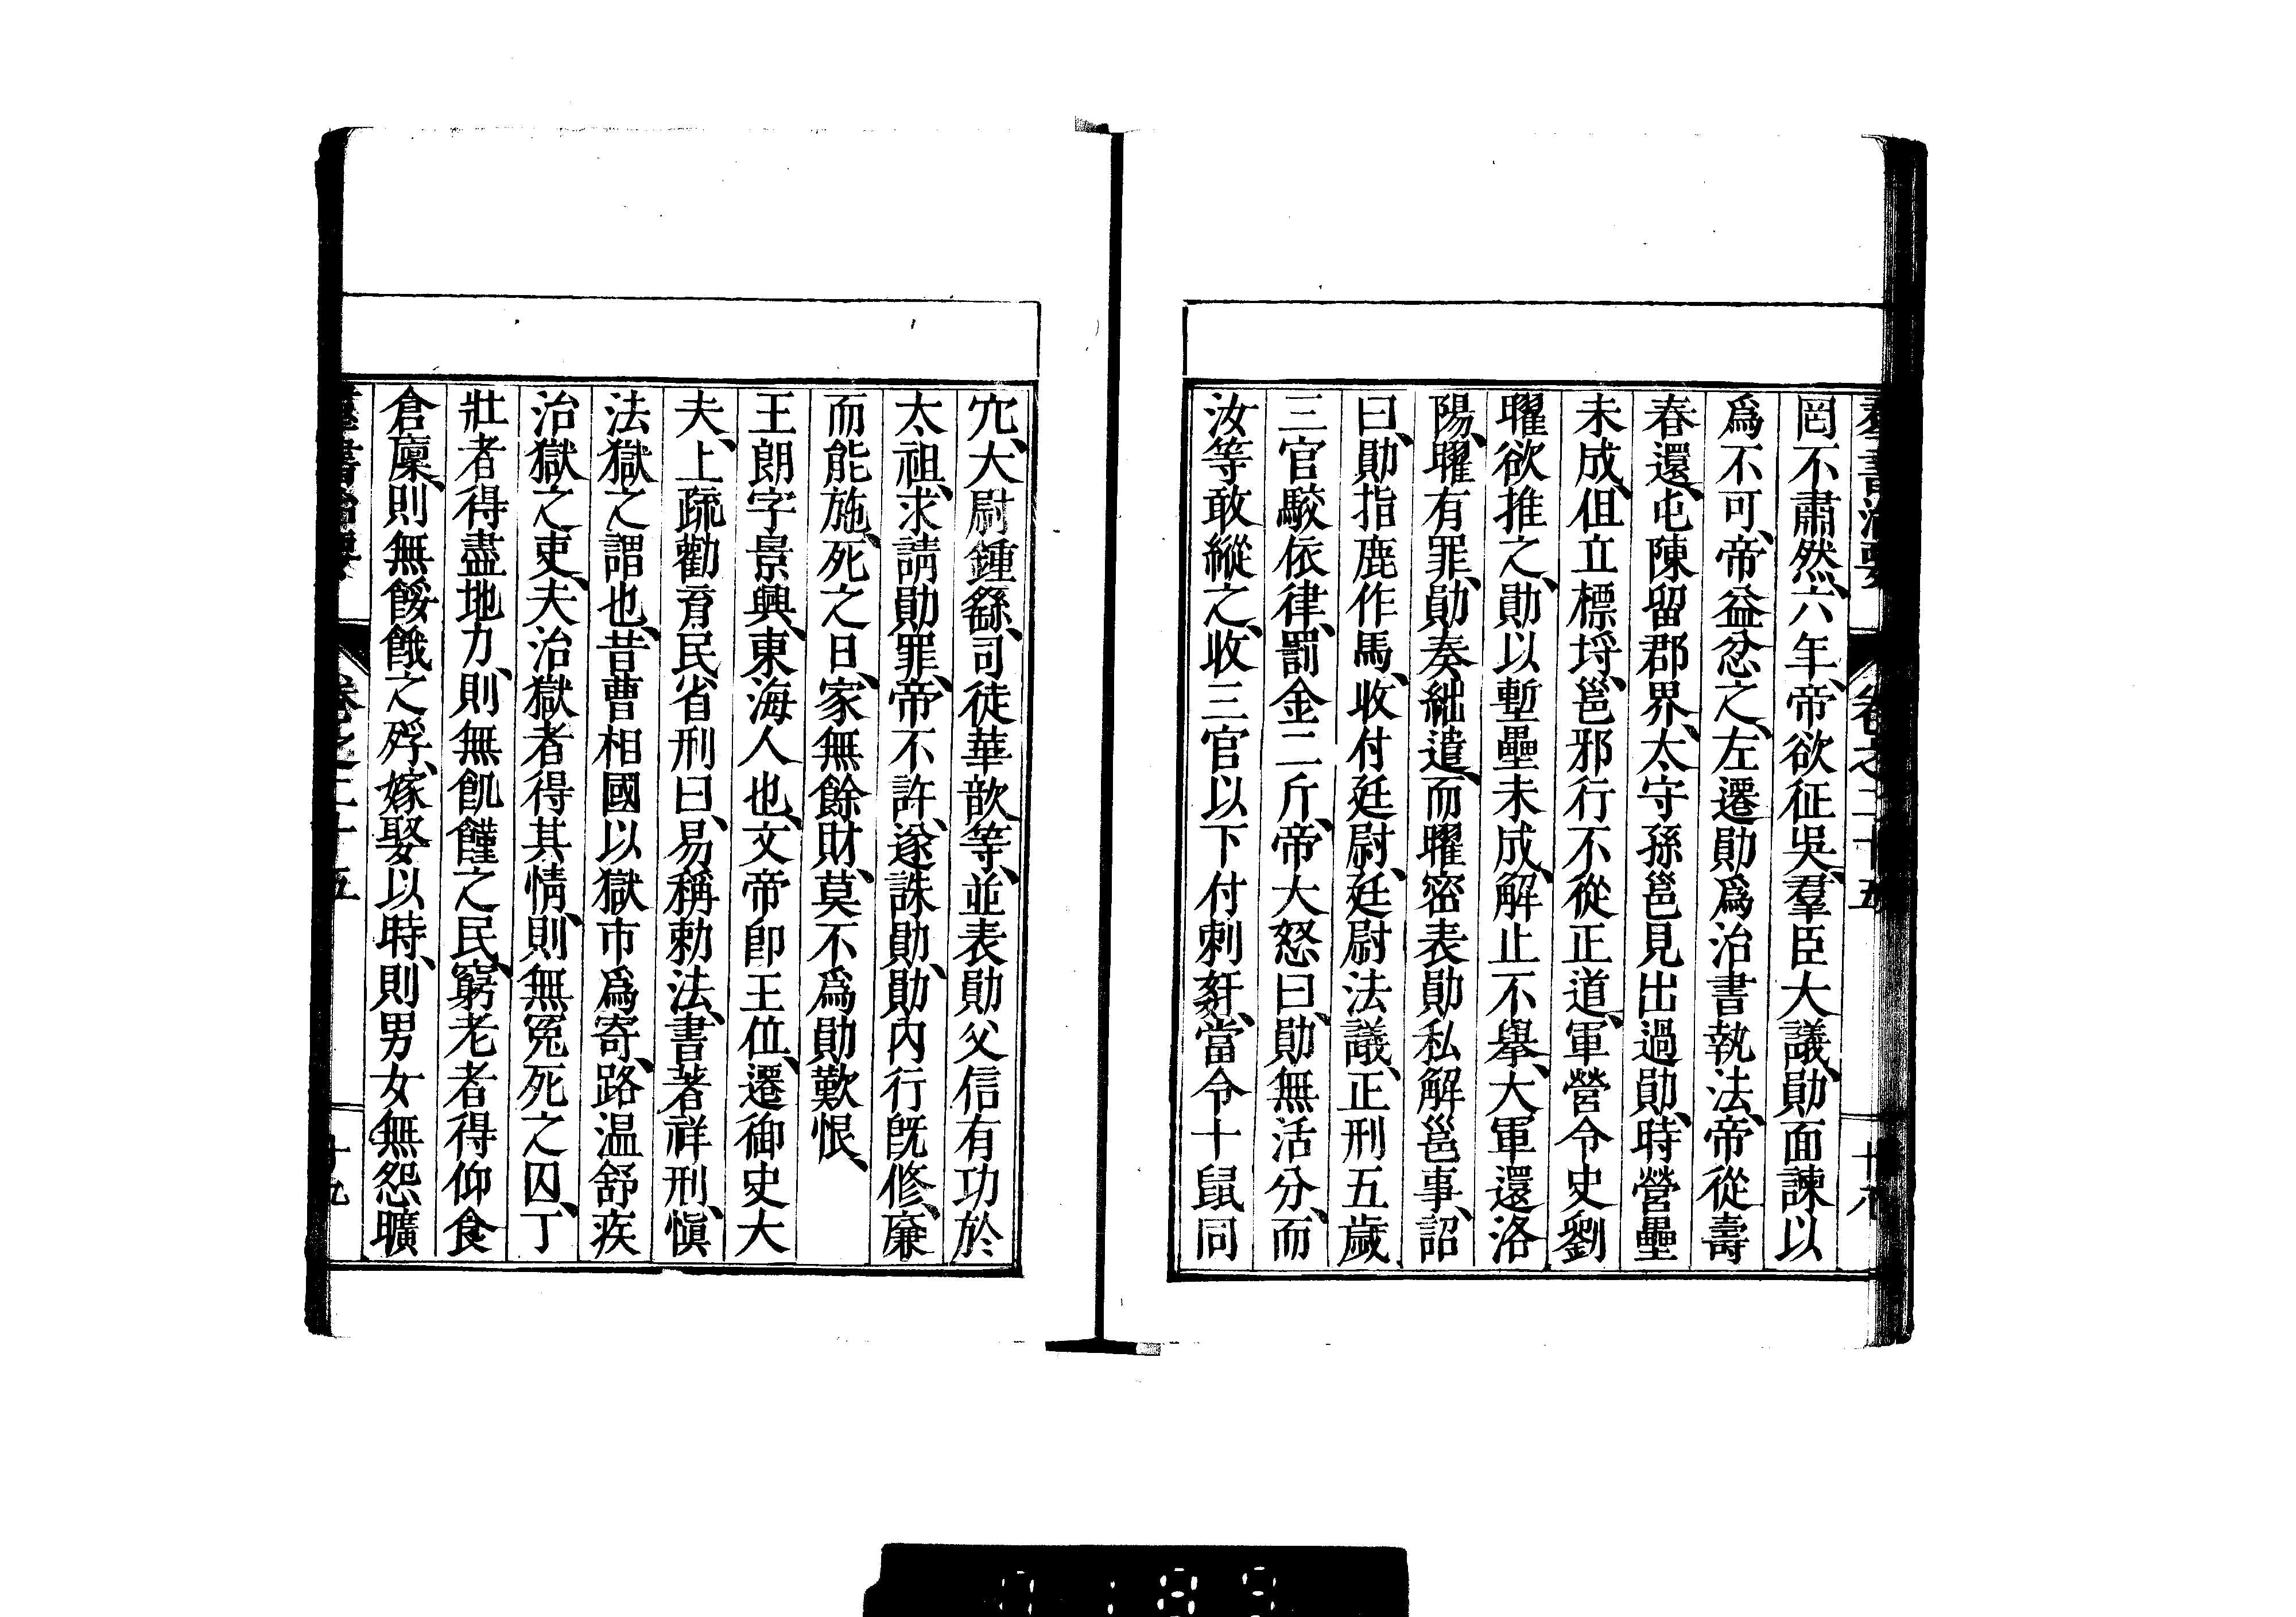 羣書治要　卷之二十五　十八
罔不肅然、六年、帝欲征吳、羣臣大議、勛面諫以
爲不可、帝益忿之、左遷勛爲治書執法、帝從壽
春還、屯陳留郡界、太守孫邕見出過勛、時營壘
未成、但立標埒、邕邪行不從正道、軍營令史劉
曜欲推之、勛以塹壘未成、解止不擧、大軍還洛
陽、曜有罪、勛奏絀遣、而曜密表勛私解邕事、詔
曰、勛指鹿作馬、收付廷尉、廷尉法議、正刑五歲
三官駮依律、罰金二斤、帝大怒曰、勛無活分、而
汝等敢縱之、收三官以下付刺姧、當令十鼠同
穴、大尉鍾繇、司徒華歆等、並表勛父信有功於
太祖、求請勛罪、帝不許、遂誅勛、勛內行旣修、廉
而能施、死之日、家無餘財、莫不爲勛歎恨、
王朗字景興、東海人也、文帝卽王位、遷御史大
夫、上疏勸育民省刑曰、易稱勅法、書著祥刑、愼
法獄之謂也、昔曹相國以獄市爲寄、路温舒疾
治獄之吏、夫治獄者得其情、則無冤死之囚、丁
壯者得盡地力、則無飢饉之民、窮老者得仰食
倉廩、則無餒餓之殍、嫁娶以時、則男女無怨曠
羣書治要　卷之二十五　十九